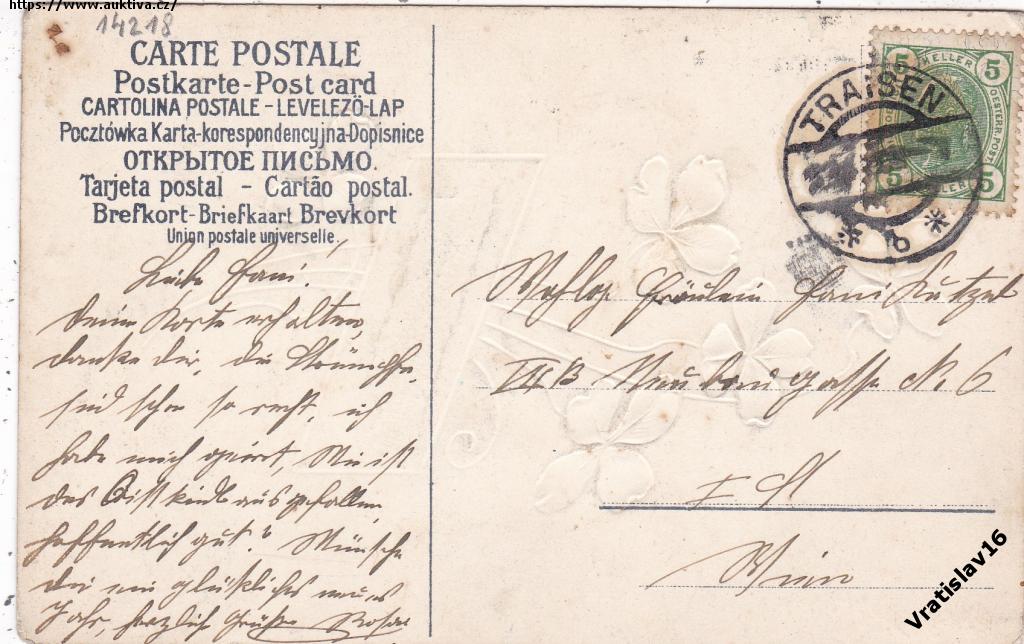 https://www.auktiva.cz/
14218
CARTE POSTALE
Postkarte-Post card
CARTOLINA POSTALE-LEVELEZÖ-LAP
Pocztówka Karta-korespondencyjna-Dopisnice
ОТКРЫТОЕ ПИСЬМО.
Tarjeta postal - Cartão postal.
Brefkort-Briefkaart Brevkort
Union postale universelle.
5 HELLER 5
OESTERR. POST
5 HELLER 5
TRAISEN
* b *
Liebe Fani!
Deine Karte erhalten,
danke dir, die Strümpfe
sind schon so recht, ich
habe mich geirrt, Wie ist
das Christkindl ausgefallen
hoffentlich gut? Wünsche
dir ein glückliches neues
Jahr, herzlich Grüße Rosa
Wohlg. Fräulein Fani
Neubaugasse No 6
Wien
Vratislav16